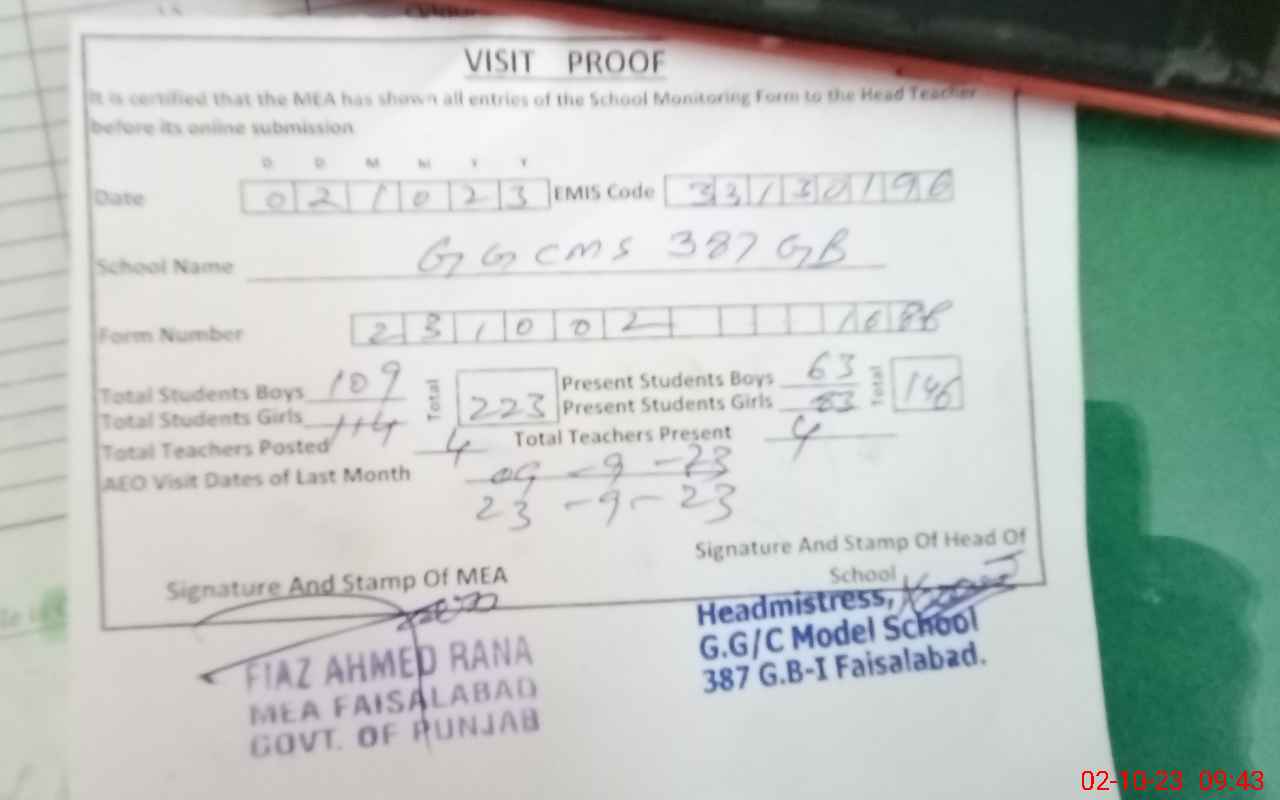 VISIT PROOF
It is certified that the MEA has shown all entries of the School Monitoring Form to the Head Teacher
before its online submission
D D M M Y Y
Date 0 2 1 0 2 3 EMIS Code 3 3 1 3 0 1 9 6
School Name G G CMS 387 GB
Form Number 2 3 1 0 0 2 1 6 8
Total Students Boys 109 Total 223 Present Students Boys 63 Total 146
Total Students Girls 114 Present Students Girls 83
Total Teachers Posted 4 Total Teachers Present 4
AEO Visit Dates of Last Month 09 - 9 - 23
23 - 9 - 23
Signature And Stamp Of MEA Signature And Stamp Of Head Of
School
FIAZ AHMED RANA
MEA FAISALABAD
GOVT. OF PUNJAB
Headmistress,
G.G/C Model School
387 G.B-I Faisalabad.
02-10-23 09:43